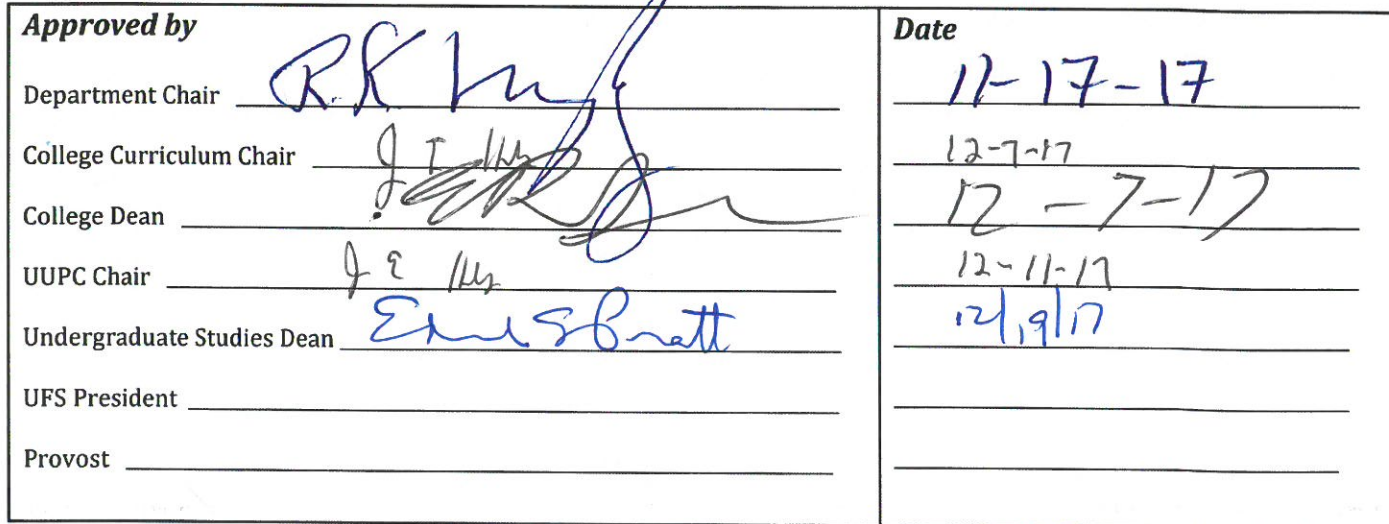 Approved by Date
Department Chair R.K 11-17-17
College Curriculum Chair 12-7-17
College Dean 12-7-17
UUPC Chair J E 12-11-17
Undergraduate Studies Dean Pratt 12/19/17
UFS President
Provost